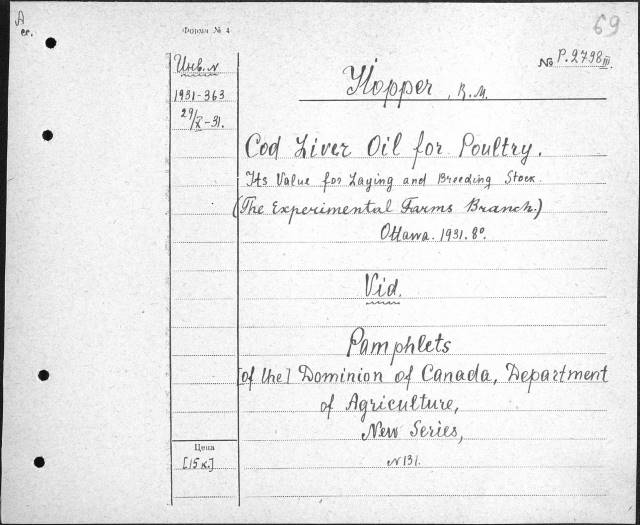 A
69
Форма № 4
№ P.2798 III.
Инв. N
1931-363
29/X-31.
Hopper, R.M.
Cod Liver Oil for Poultry.
Its Value for Laying and Breeding Stock
(The Experimental Farms Branch.)
Ottawa. 1931. 8°.
Vid.
Pamphlets
[of the] Dominion of Canada, Department
of Agriculture,
New Series,
N 131.
Цена
[15 к.]